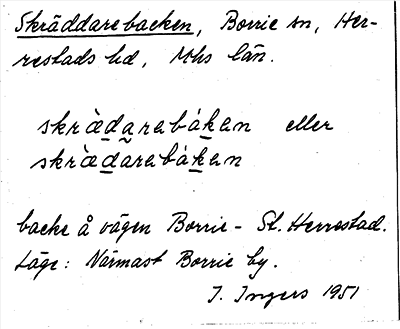 Skräddarebacken, Borrie sn, Her-
restads hd, Mhs län.
skrädarabákan eller
skrädarabákan
backe å vägen Borrie - St. Herrestad.
Läge: Närmast Borrie by.
I. Ingers 1951